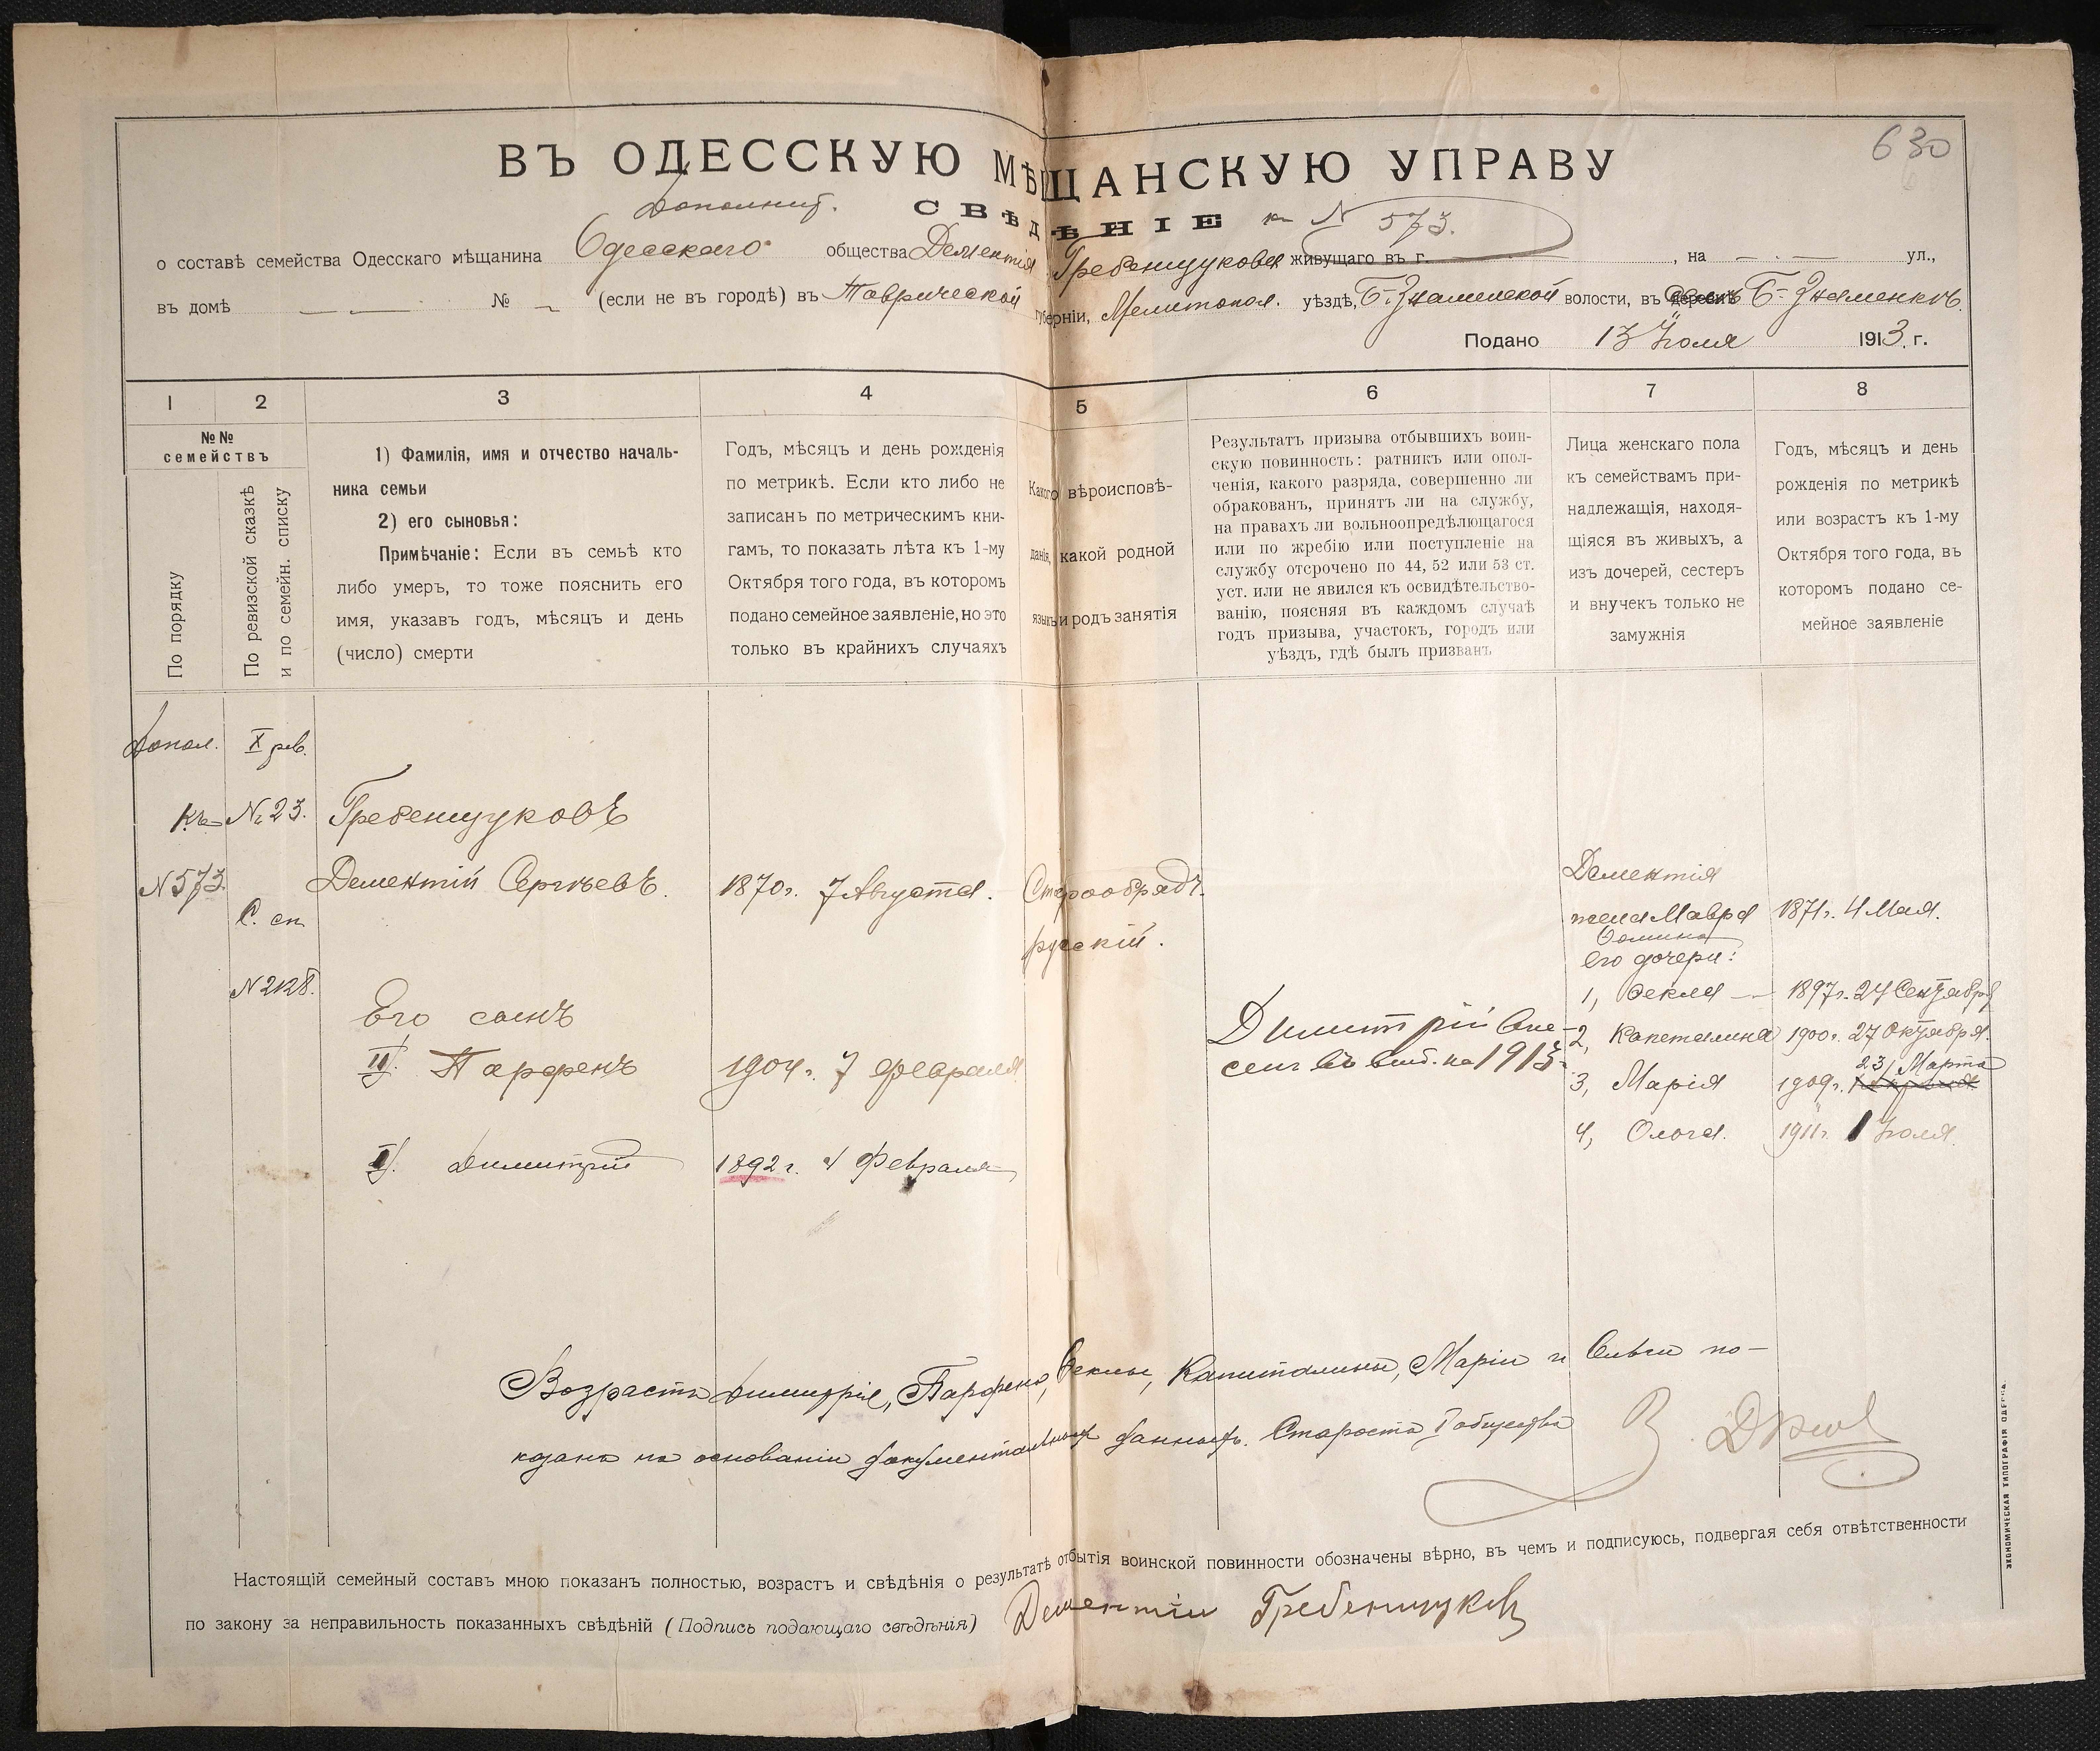 630
ВЪ ОДЕССКУЮ МѢЩАНСКУЮ УПРАВУ
Дополнит. СВѢДѢНІЕ к № 573.
о составѣ семейства Одесскаго мѣщанина Одесскаго общества Дементія Гребенщукова живущаго въ г. — , на — . — ул.,
въ домѣ — — № — (если не въ городѣ) въ Таврической губерніи, Мелитопол. уѣздѣ, Б.-Знаменской волости, въ селѣ Б-Знаменкѣ.
Подано 13 Іюля 1913. г.
1 2 3 4 5 6 7 8
№№ семействъ
По порядку
По ревизской сказкѣ и по семейн. списку
1) Фамилія, имя и отчество началь-
ника семьи
2) его сыновья:
Примѣчаніе: Если въ семьѣ кто
либо умеръ, то тоже пояснить его
имя, указавъ годъ, мѣсяцъ и день
(число) смерти
Годъ, мѣсяцъ и день рожденія
по метрикѣ. Если кто либо не
записанъ по метрическимъ кни-
гамъ, то показать лѣта къ 1-му
Октября того года, въ которомъ
подано семейное заявленіе, но это
только въ крайнихъ случаяхъ
Какого вѣроисповѣ-
данія, какой родной
языкъ и родъ занятія
Результатъ призыва отбывшихъ воин-
скую повинность: ратникъ или опол-
ченія, какого разряда, совершенно ли
обракованъ, принятъ ли на службу,
на правахъ ли вольноопредѣлющагося
или по жребію или поступленіе на
службу отсрочено по 44, 52 или 53 ст.
уст. или не явился къ освидѣтельство-
ванію, поясняя въ каждомъ случаѣ
годъ призыва, участокъ, городъ или
уѣздъ, гдѣ былъ призванъ
Лица женскаго пола
къ семействамъ при-
надлежащія, находя-
щіяся въ живыхъ, а
изъ дочерей, сестеръ
и внучекъ только не
замужнія
Годъ, мѣсяцъ и день
рожденія по метрикѣ
или возрастъ къ 1-му
Октября того года, въ
которомъ подано се-
мейное заявленіе
Допол. X рев.
къ № 23. Гребенщуковъ
N 573. Дементій Сергѣевъ. 1870 г. 7 Августа. Старообрядч.
С. сп. русскій.
N 2128.
Дементія
жена Мавра 1871 г. 4 Мая.
Фомина
его дочери:
1, Фекла — 1897 г. 24 Сентября
Его сынъ
Димитрій вне-
2, Капеталина 1900 г. 27 Октября.
II). Парфенъ 1904 г. 7 февраля
сенъ въ 1913
3, Марія 1909 г. 23/ Марта
4, Ольга. 1911 г. 1 Іюля.
I). Димитрій 1892 г. 4 Февраля
Возраста Димитрія, Парфена, Феклы, Капиталины, Маріи и Ольги по-
казаны на основаніи документальныхъ данныхъ. Староста общества
Настоящій семейный составъ мною показанъ полностью, возрастъ и свѣдѣнія о результатѣ отбытія воинской повинности обозначены вѣрно, въ чемъ и подписуюсь, подвергая себя отвѣтственности
по закону за неправильность показанныхъ свѣдѣній (Подпись подающаго свѣдѣнія) Дементій Гребенщуковъ
ЭКОНОМИЧЕСКАЯ ТИПОГРАФІЯ ОДЕССА.